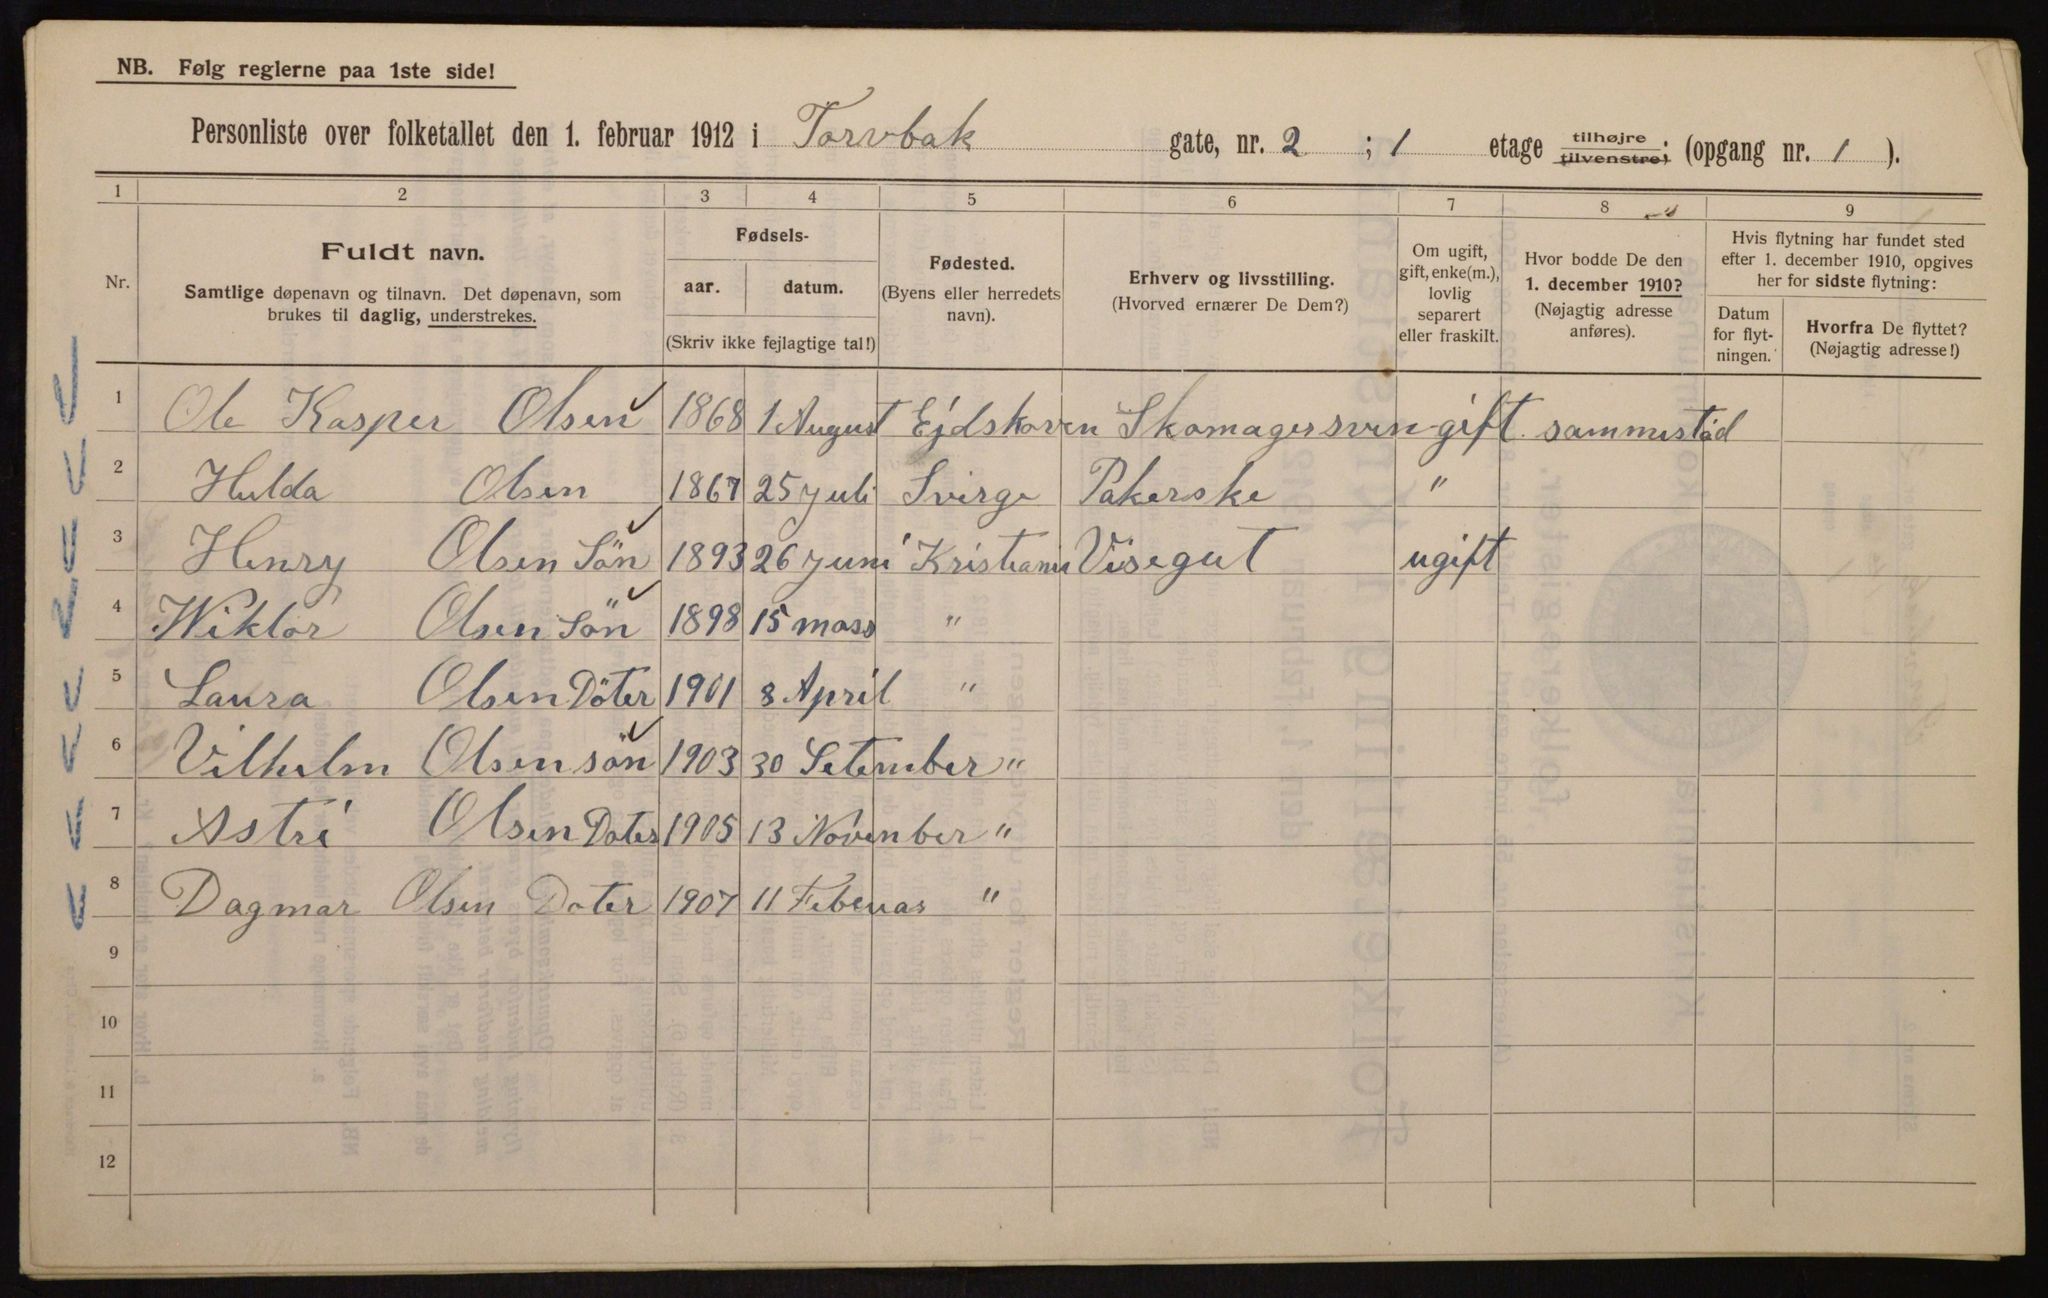 NB. Følg reglerne paa 1ste side!
Personliste over folketallet den 1. februar 1912 i Torvbak gate, nr. 2 ; 1 etage tilhøjre tilvenstre; (opgang nr. 1 ).
1 2 3 4 5 6 7 8 9
Nr.
Fuldt navn.
Samtlige døpenavn og tilnavn. Det døpenavn, som
brukes til daglig, understrekes.
Fødsels-
aar. datum.
(Skriv ikke fejlagtige tal!)
Fødested.
(Byens eller herredets
navn).
Erhverv og livsstilling.
(Hvorved ernærer De Dem?)
Om ugift,
gift, enke(m.),
lovlig
separert
eller fraskilt.
Hvor bodde De den
1. december 1910?
(Nøjagtig adresse
anføres).
Hvis flytning har fundet sted
efter 1. december 1910, opgives
her for sidste flytning:
Datum
for flyt-
ningen.
Hvorfra De flyttet?
(Nøjagtig adresse!)
1 Ole Kasper Olsen 1868 1 August Ejdskoven Skomagersven gift sammestäd
2 Hulda Olsen 1867 25 juli Sverge Pakerske "
3 Henry Olsen Sön 1893 26 juni Kristiania Visegut ugift
4 Wiktor Olsen Sön 1898 15 mars "
5 Laura Olsen Döter 1901 8 April "
6 Vilhelm Olsen sön 1903 30 Setember "
7 Astri Olsen Doter 1905 13 November "
8 Dagmar Olsen Doter 1907 11 Februar "
9
10
11
12